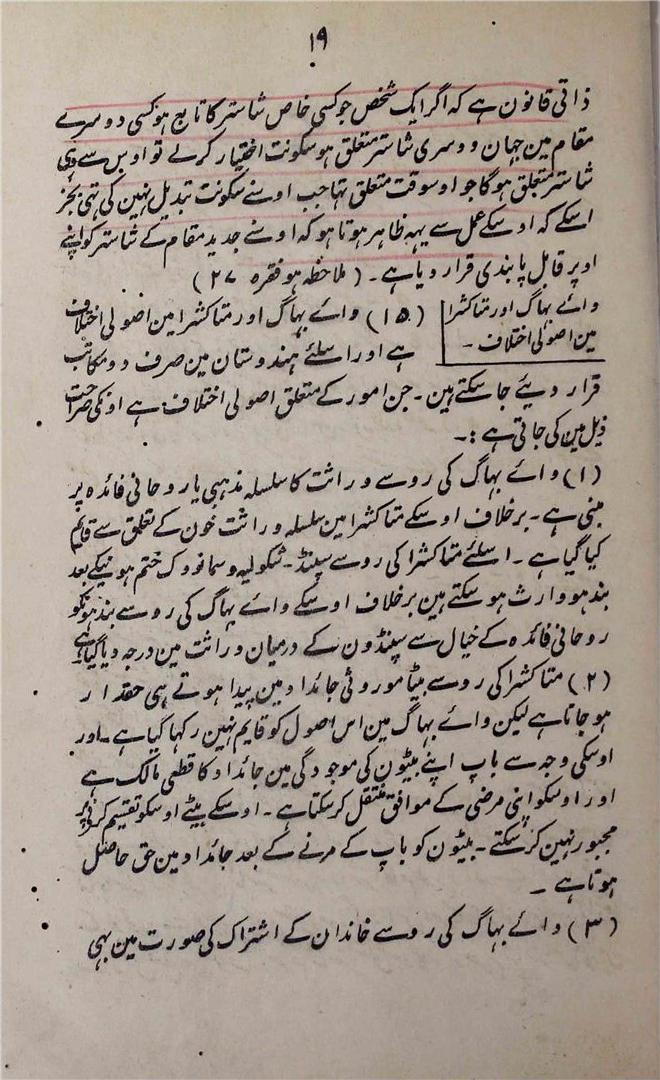 ۱۹
ذاتی قانون ہے کہ اگر ایک شخص جو کسی خاص شاستر کا تابع ہو کسی دوسرے
مقام مین جہان دوسری شاستر متعلق ہو سکونت اختیار کرلے تو اوس سے وہی
شاستر متعلق ہوگا جو اوسوقت متعلق تہا جب اوسنے سکونت تبدیل نہین کی تہی بجز
اسکے کہ اوسکے عمل سے یہہ ظاہر ہوتا ہو کہ اوسنے جدید مقام کے شاستر کو اپنے
اوپر قابل پابندی قرار دیا ہے۔ (ملاحظہ ہو فقرہ ۲۷)
دائے بہاگ اور متاکشرا
مین اصولی اختلاف۔
(۱۵) دائے بہاگ اور متاکشرا مین اصولی اختلاف
ہے اور اسلئے ہندوستان مین صرف دو مکاتب
قرار دیئے جا سکتے ہین۔ جن امور کے متعلق اصولی اختلاف ہے اونکی صراحت
ذیل مین کی جاتی ہے:۔
(۱) دائے بہاگ کی رو سے وراثت کا سلسلہ مذہبی یا روحانی فائدہ پر
مبنی ہے۔ برخلاف اوسکے متاکشرا مین سلسلہ وراثت خون کے تعلق سے قایم
کیا گیا ہے۔ اسلئے متاکشرا کی رو سے سپنڈ۔ سکولیہ و سمانودک ختم ہونیکے بعد
بندہو وارث ہو سکتے ہین برخلاف اوسکے دائے بہاگ کی رو سے بندہو کو
روحانی فائدہ کے خیال سے سپنڈون کے درمیان وراثت مین درجہ دیا گیا ہے
(۲) متاکشرا کی رو سے بیٹا موروثی جائداد مین پیدا ہوتے ہی حقدار
ہو جاتا ہے لیکن دائے بہاگ مین اس اصول کو قایم نہین رکہا گیا ہے۔ اور
اوسکی وجہ سے باپ اپنے بیٹون کی موجودگی مین جائداد کا قطعی مالک ہے
اور اوسکو اپنی مرضی کے موافق منتقل کر سکتا ہے۔ اوسکے بیٹے اوسکو تقسیم کرنے پر
مجبور نہین کر سکتے۔ بیٹون کو باپ کے مرنے کے بعد جائداد مین حق حاصل
ہوتا ہے۔
(۳) دائے بہاگ کی رو سے خاندان کے اشتراک کی صورت مین بہی